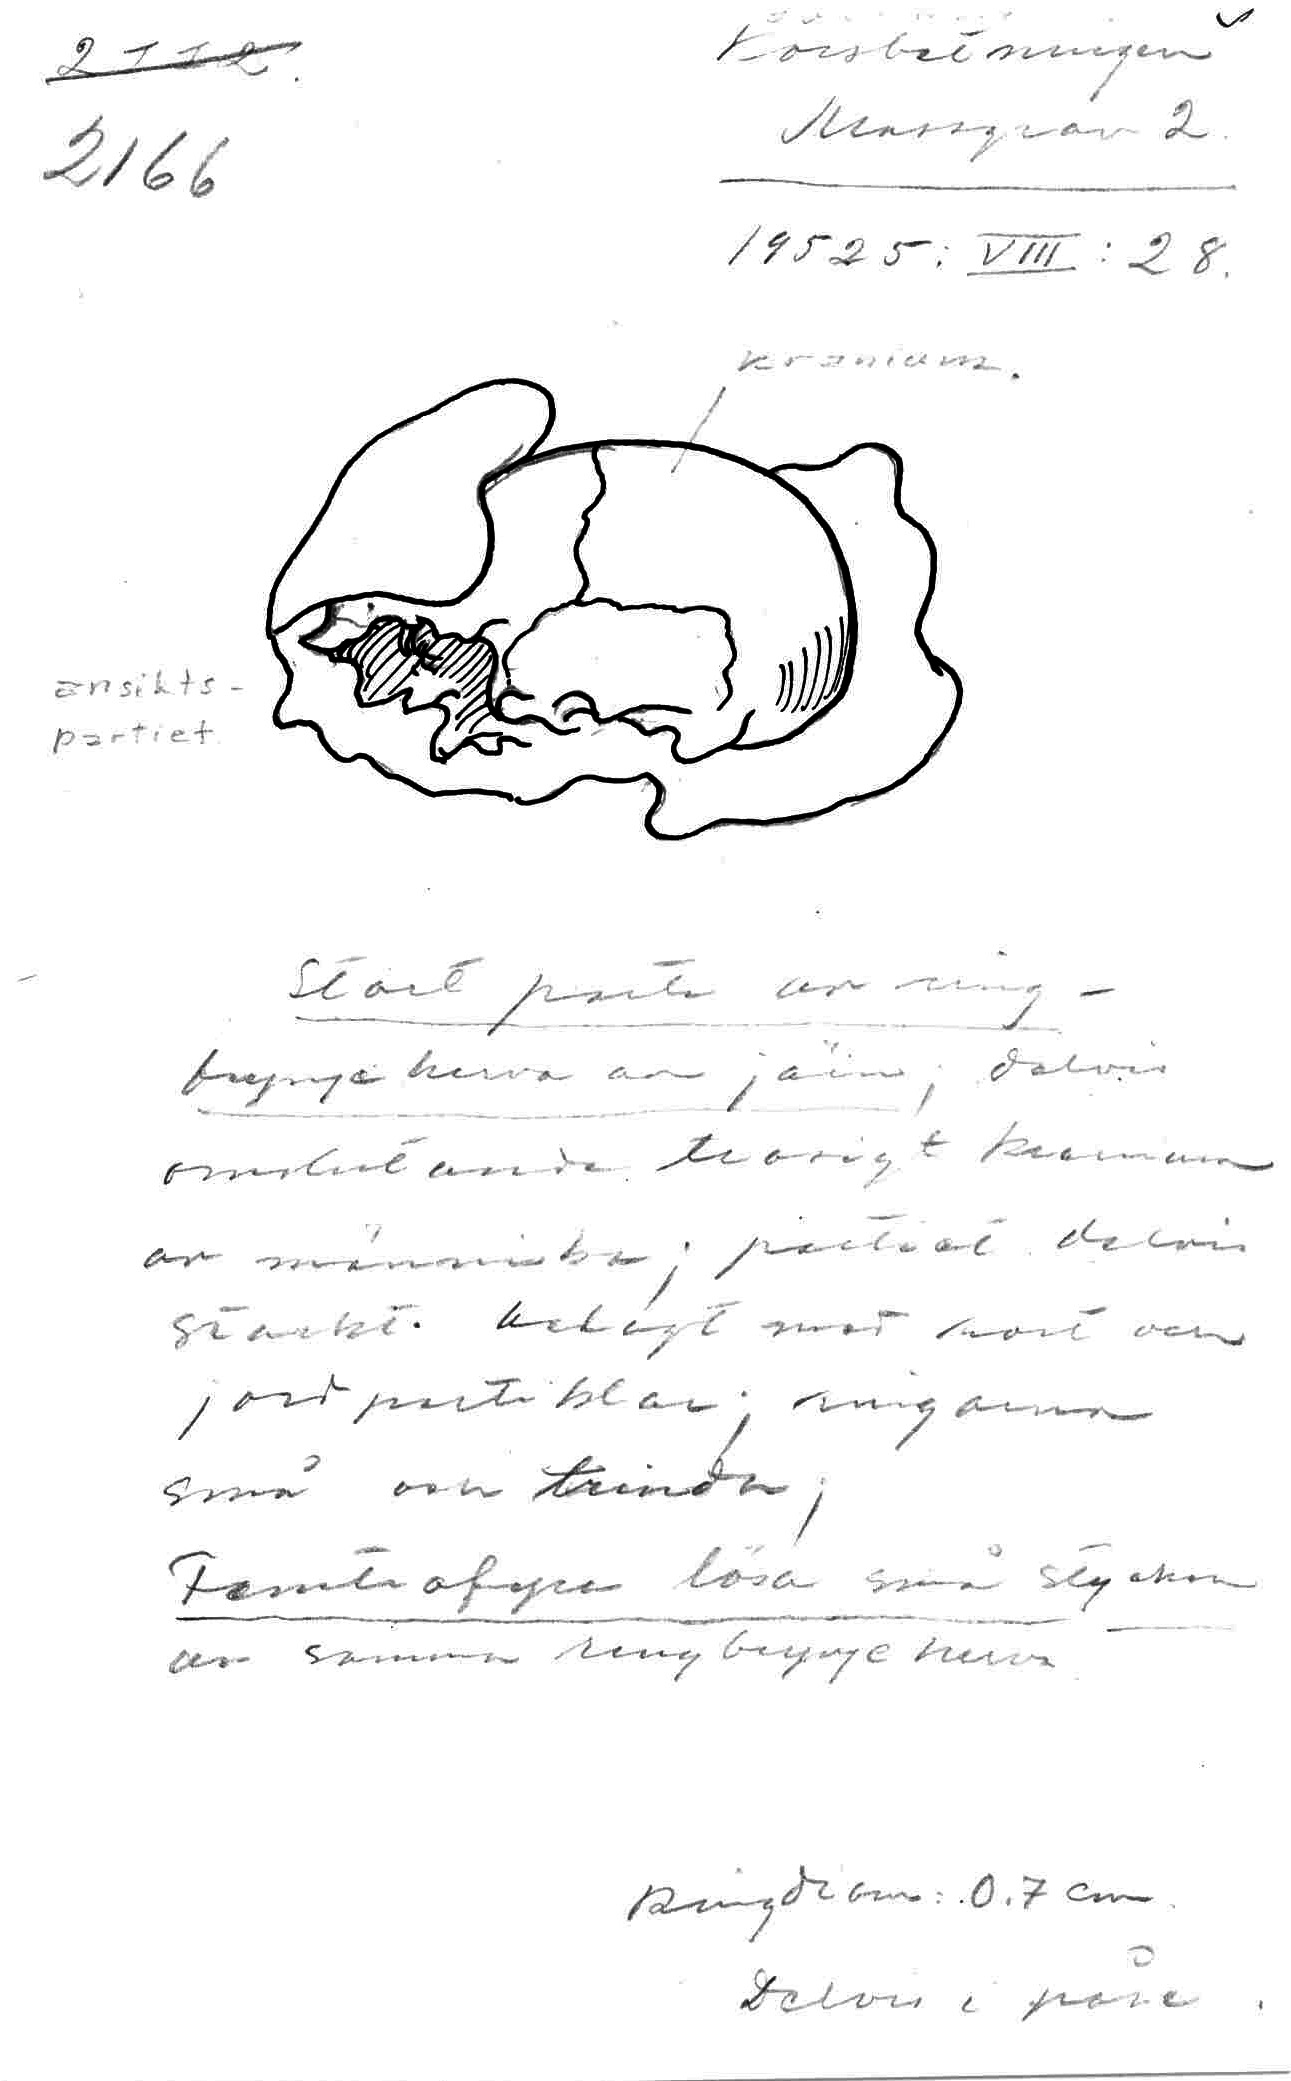 2112.
2166
Korsbetningen
Massgrav 2.
19525: VIII : 28.
kranium.
ansikts-
partiet
Stort parti av ring-
brynje huva av järn; delvis
omslutande trasigt kranium
av människa; partiet delvis
starkt belagt med rost och
jordpartiklar; ringarna
små och trinda;
Femtiofyra lösa små stycken
av samma ringbrynje huva
Ringdiam: 0.7 cm.
Delvis i påse.